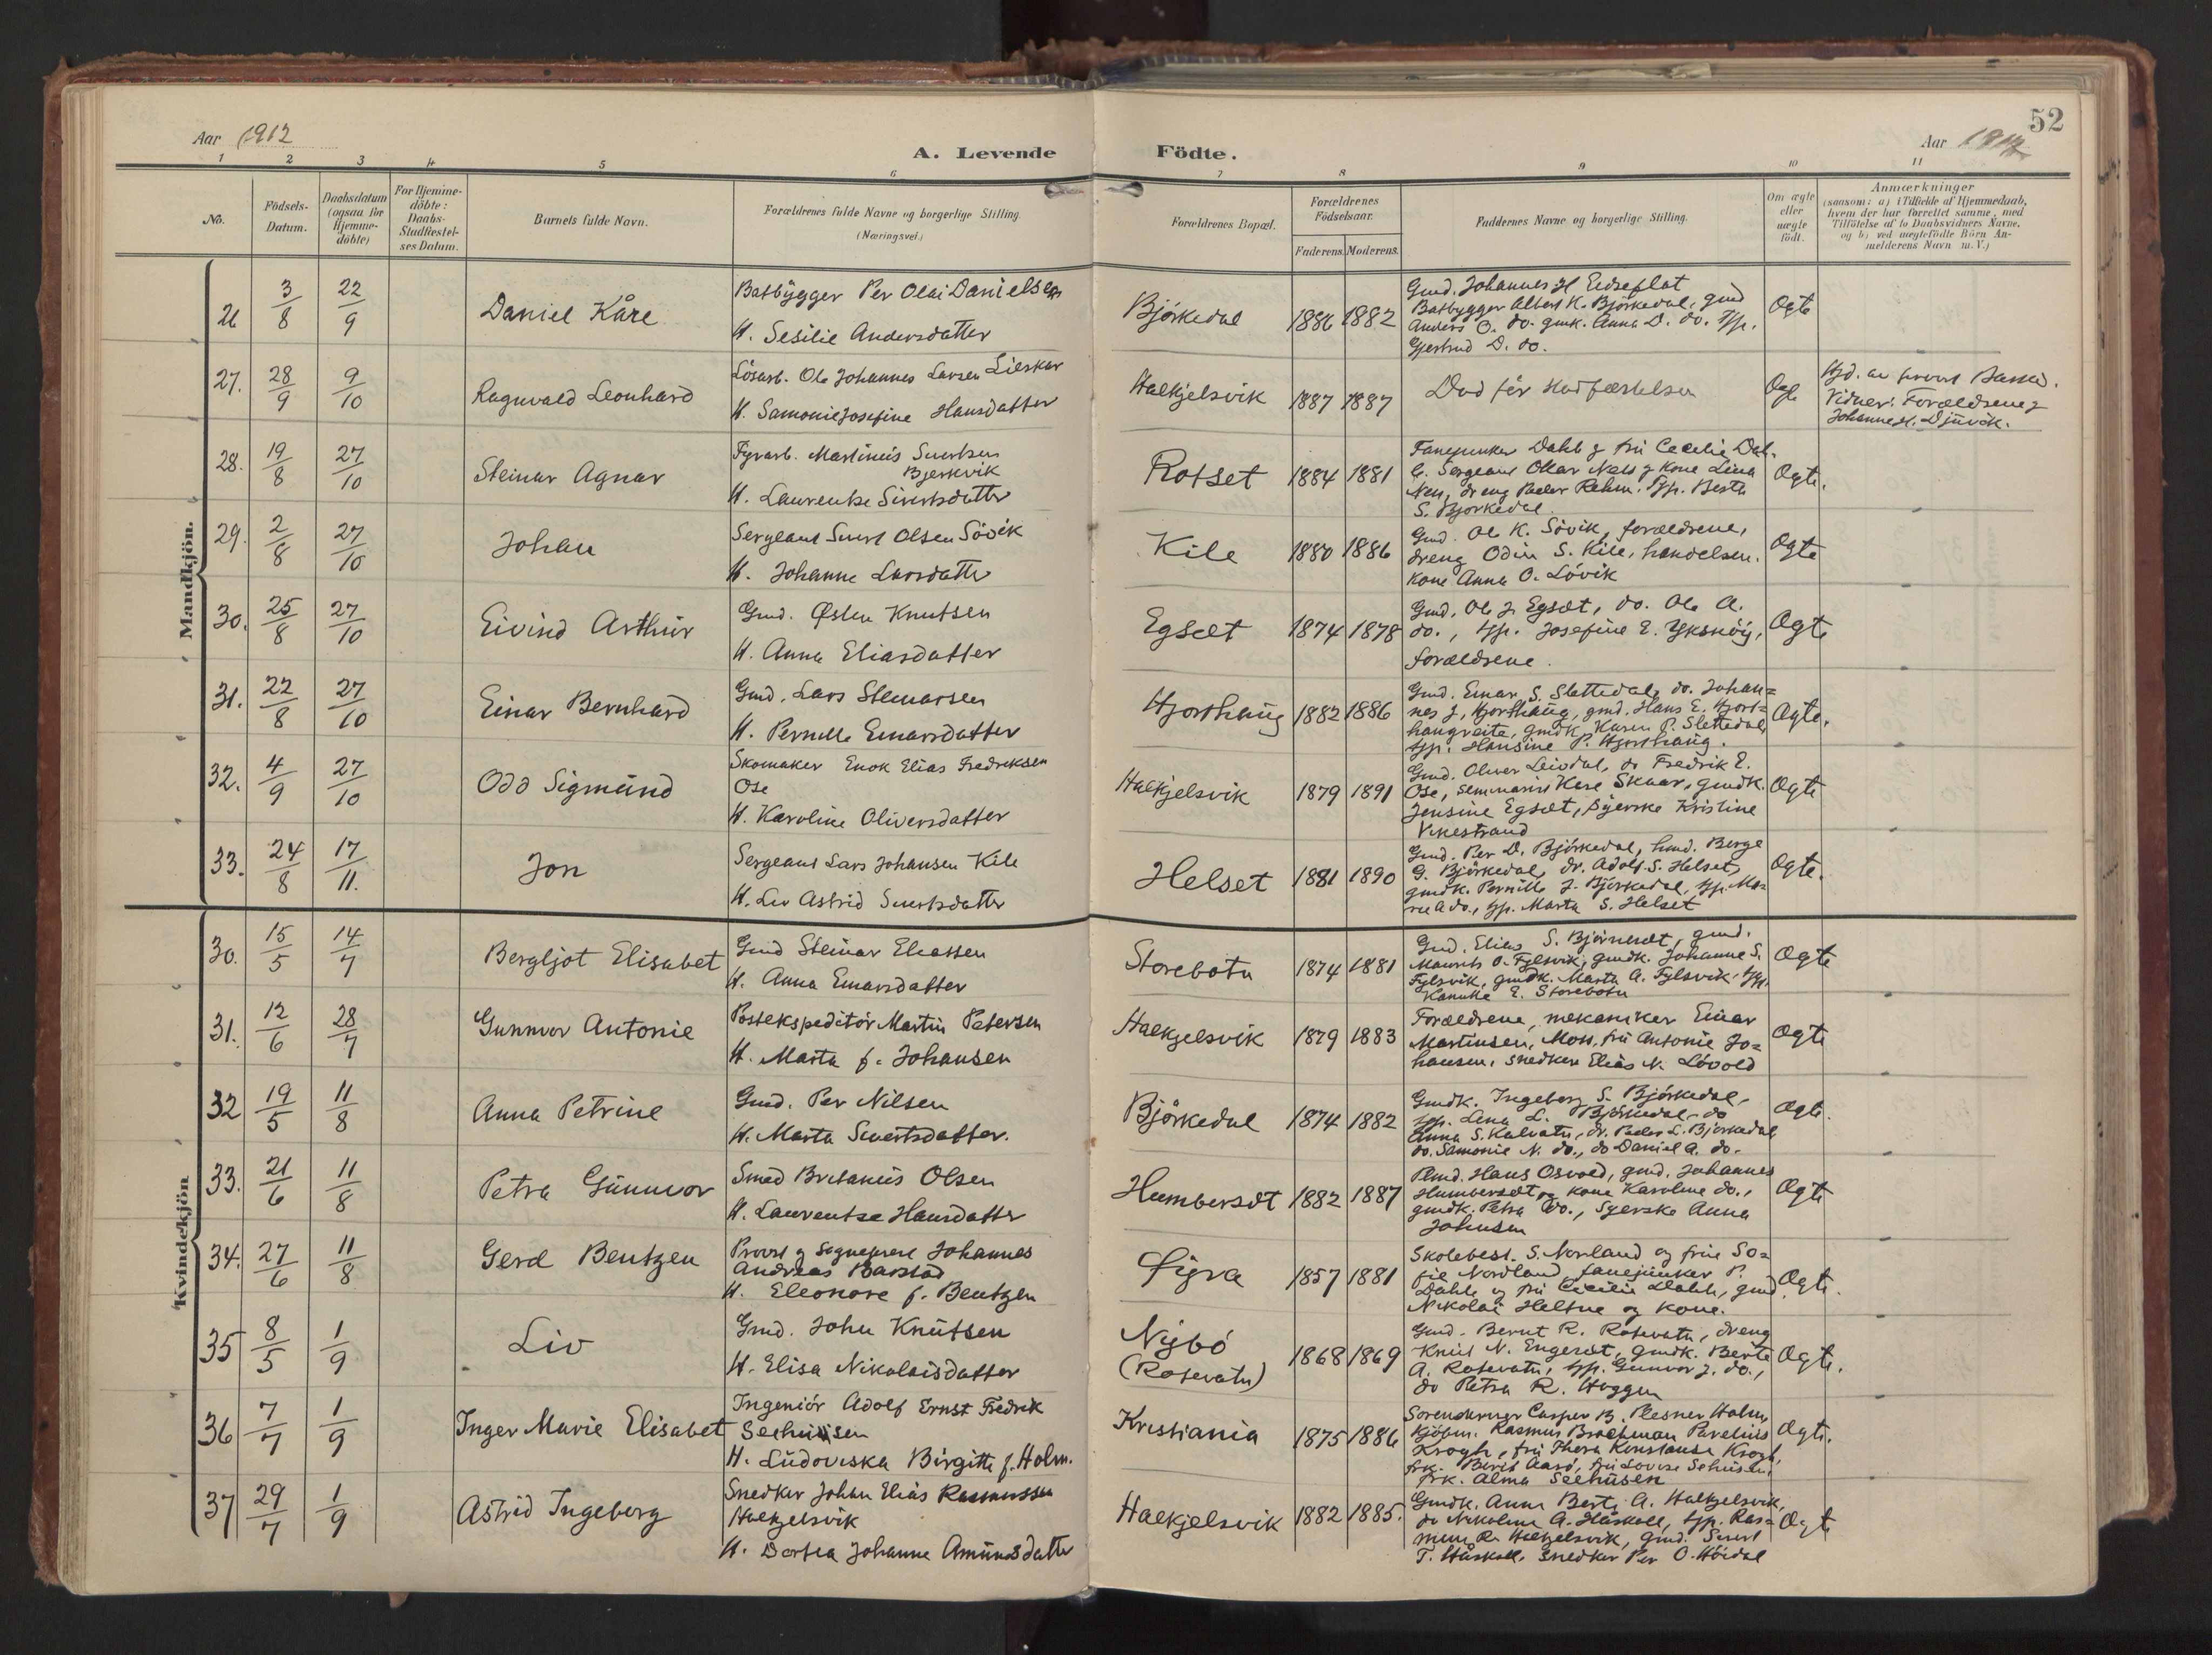 52
Aar 1912
A. Levende Födte.
Aar 1912
1 2 3 4 5 6 7 8 9 10 11
No.
Födsels-Datum.
Daabsdatum (ogsaa for Hjemme-döbte)
For Hjemme-döbte: Daabs-Stadfæstel-ses Datum.
Barnets fulde Navn.
Forældrenes fulde Navne og borgerlige Stilling. (Næringsvei.)
Forældrenes Bopæl.
Forældrenes Födselsaar.
Faderens. Moderens.
Faddernes Navne og borgerlige Stilling.
Om ægte eller uægte födt.
Anmærkninger
(saasom: a) i Tilfælde af Hjemmedaab,
hvem der har forrettet samme, med
Tilföielse af to Daabsvidners Navne,
og b) ved uægtefödte Börn An-
melderens Navn m. V.)
Mandkjön.
26 3/8 22/9 Daniel Kåre
Båtbygger Per Olai Danielsen
H. Sesilie Andersdatter
Björkedal 1886 1882
Gmd. Johannes H Eidseflot
Båtbygger Albert K. Björkedal, gmd
Anders O. do. gmk. Anna D. do. Tjp.
Gjertrud D. do.
Ogte
27. 28/9 9/10 Ragnvald Leonhard
Lösarb. Ole Johannes Larsen Lieskar
H. Samonie Josefine Hansdatter
Halkjelsvik 1887 1887
Död för stadfæstelsen
Ogte
Hjd. av provst Barstad.
Vidner: Forældrene og
Johannes H. Djuvik.
28. 19/8 27/10 Steinar Agnar
Fyrarb. Martinus Sivertsen
Bjerkvik
H. Laurentse Sivertsdatter
Rotset 1884 1881
Fanejunker Dahle og fru Cecilie Dah-
le. Sergeant Oskar Næss og kone Lina
Næs, dreng Peder Rehm. Tjp. Berta
S. Bjorkedal.
Ogte.
29. 2/8 27/10 Johan
Sergeant Sivert Olsen Sövik
H. Johanne Larsdatter
Kile 1880 1886
Gmd. Ole K. Sövik, forældrene,
dreng Odin S. Kile, handelsm.
kone Anna O. Lövik
Ogte
30. 25/8 27/10 Eivind Arthur
Gmd. Østen Knutsen
H. Anna Eliasdatter
Egset 1874 1878
Gmd. Ole J. Egset, do. Ole A.
do., tjp. Josefine E. Yksnöy,
forældrene.
Ogte
31. 22/8 27/10 Einar Bernhard
Gmd. Lars Steinarsen
H. Pernille Einarsdatter
Hjorthaug 1882 1886
Gmd. Einar S. Slettedal, do. Johan-
nes J. Hjorthaug, gmd. Hans E. Hjort-
haugreite, gmdk Karen P. Slettedal,
tjp. Hansine P. Hjorthaug.
Ogte.
32. 4/9 27/10 Odd Sigmund
Skomaker Enok Elias Fredriksen
Ose
H. Karoline Oliversdatter
Halkjelsvik 1879 1891
Gmd. Oliver Leivdal, do Fredrik E.
Ose, seminarist Kåre Skaar, gmdk.
Jensine Egset, syerske Kristine
Vikestrand
Ogte
33. 24/8 17/11. Jon
Sergeant Lars Johansen Kile
H. Liv Astrid Sivertsdatter
Helset 1881 1890
Gmd. Per D. Björkedal, hmd. Berge
G. Björkedal, dr. Adolf S. Helset,
gmdk. Pernille J. Björkedal, tjp. Ma-
rie A do., tjp. Marta S. Helset
Ogte.
Kvindekjön
30. 15/5 14/7 Bergljot Elisabet
Gmd Steinar Eliassen
H. Anna Einarsdatter
Storebotn 1874 1881
Gmd. Elias S. Björneset, gmd.
Maurits O. Fylsvik, gmdk. Johanne S.
Fylsvik, gmdk. Marta A. Fylsvik. tjp.
E. Storebotn
Ogte
31. 12/6 28/7 Gunnvor Antonie
Postekspeditör Martin Petersen
H. Marta f. Johansen
Halkjelsvik 1879 1883
Forældrene, mekaniker Einar
Martinsen, Moss, fru Antonie Jo-
hansen, snedker Elias N. Lövold
Ogte
32 19/5 11/8 Anna Petrine
Gmd. Per Nilsen
H. Marta Sivertsdatter.
Björkedal 1874 1882
Gmdk. Ingeborg S. Björkedal,
tjp. Lena L. Björkedal, do
Anna S. Kalvatn, dr. Peder L. Björkedal,
do. Samonie N. do., do Daniel A. do.
Ogte.
33. 21/6 11/8 Petra Gunnvor
Smed Bretanus Olsen
H. Laurentse Hansdatter
Humberset 1882 1887
Hmd. Hans Osvold, gmd. Johannes
Humberset og kone Karoline do.,
gmdk. Petra do., Syerske Anna
Johnsen
Ogte
34. 27/6 11/8 Gerd Bentzen
Provst og Sogneprest Johannes
Andreas Barstad
H. Eleonore f. Bentzen
Öyra 1857 1881
Skolebest. S. Norland og frue So-
fie Nordland fanejunker P.
Dahle og fru Cecilie Dahle, gmd
Nikolai Heltne og kone.
Ogte.
35 8/5 1/9 Liv
Gmd. John Knutsen
H. Elisa Nikolaisdatter
Nybö
(Rotevatn) 1868 1869
Gmd. Bernt R. Rotevatn, dreng
Knut N. Engeset, gmdk. Berte
A. Rotevatn, tjp. Gunnvor J. do.,
do Petra R. Heggen
Ogte.
36 7/7 1/9 Inger Marie Elisabet
Ingeniör Adolf Ernst Fredrik
Seehuusen
H. Ludoviska Birgitte f. Holm.
Kristiania 1875 1886
Sorenskriver Casper B. Plesner Holm,
kjöpm. Rasmus Brochman Parelius
Krogh, fru Thora Konstanse Krogh,
frk. Berit Aarö, fru Lovise Sehusen,
frk. Alma Seehusen
Ogte.
37 29/7 1/9 Astrid Ingeborg
Snedker Johan Elias Rasmussen
Halkjelsvik
H. Dortea Johanne Amundsdatter
Halkjelsvik 1882 1885.
Gmdk. Anne Berte A. Halkjelsvik,
do Nikoline A. Håskoll, tjp. Ras-
mine R. Halkjelsvik, gmd. Sivert
T. Håskoll, snedker Per O. Höidal
Ogte